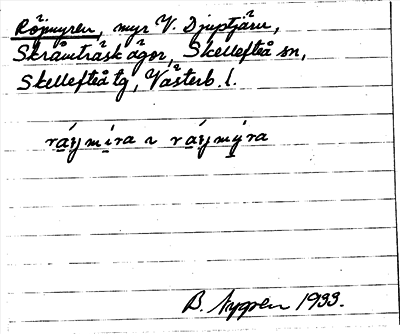 Röjmyren, myr V. Djuptjärn,
Skråmträsk ägor, Skellefteå sn,
Skellefteå tg, Västerb. l.
ráy̭mi̱ra ɪ ráy̭mẏra
B. Nygren 1933.